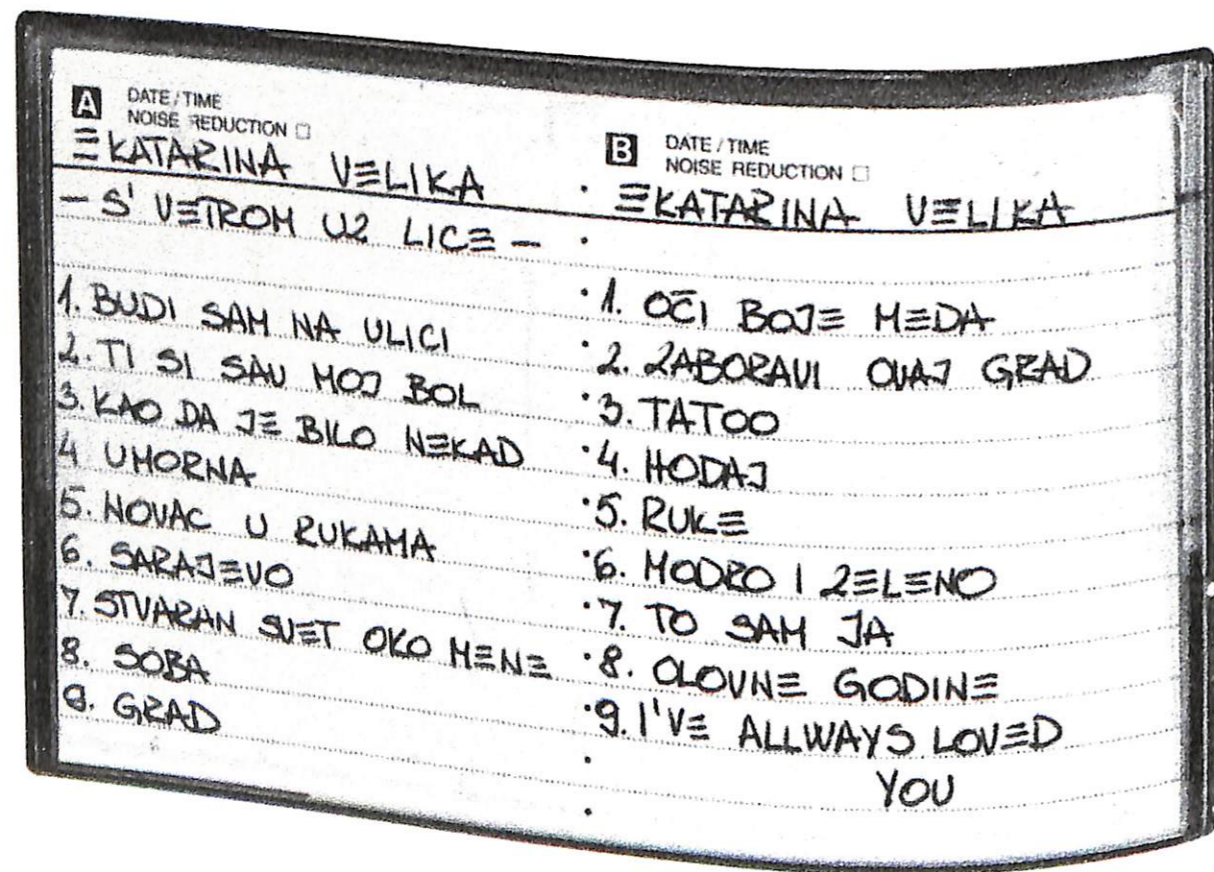 A DATE / TIME
NOISE REDUCTION
EKATARINA VELIKA
- S' VETROM UZ LICE -
1. BUDI SAM NA ULICI
2. TI SI SAV MOJ BOL
3. KAO DA JE BILO NEKAD
4 UMORNA
5. NOVAC U RUKAMA
6. SARAJEVO
7. STVARAN SVET OKO MENE
8. SOBA
9. GRAD
B DATE / TIME
NOISE REDUCTION
EKATARINA VELIKA
1. OČI BOJE MEDA
2. ZABORAVI OVAJ GRAD
3. TATOO
4. HODAJ
5. RUKE
6. MODRO I ZELENO
7. TO SAM JA
8. OLOVNE GODINE
9. I'VE ALLWAYS LOVED
YOU